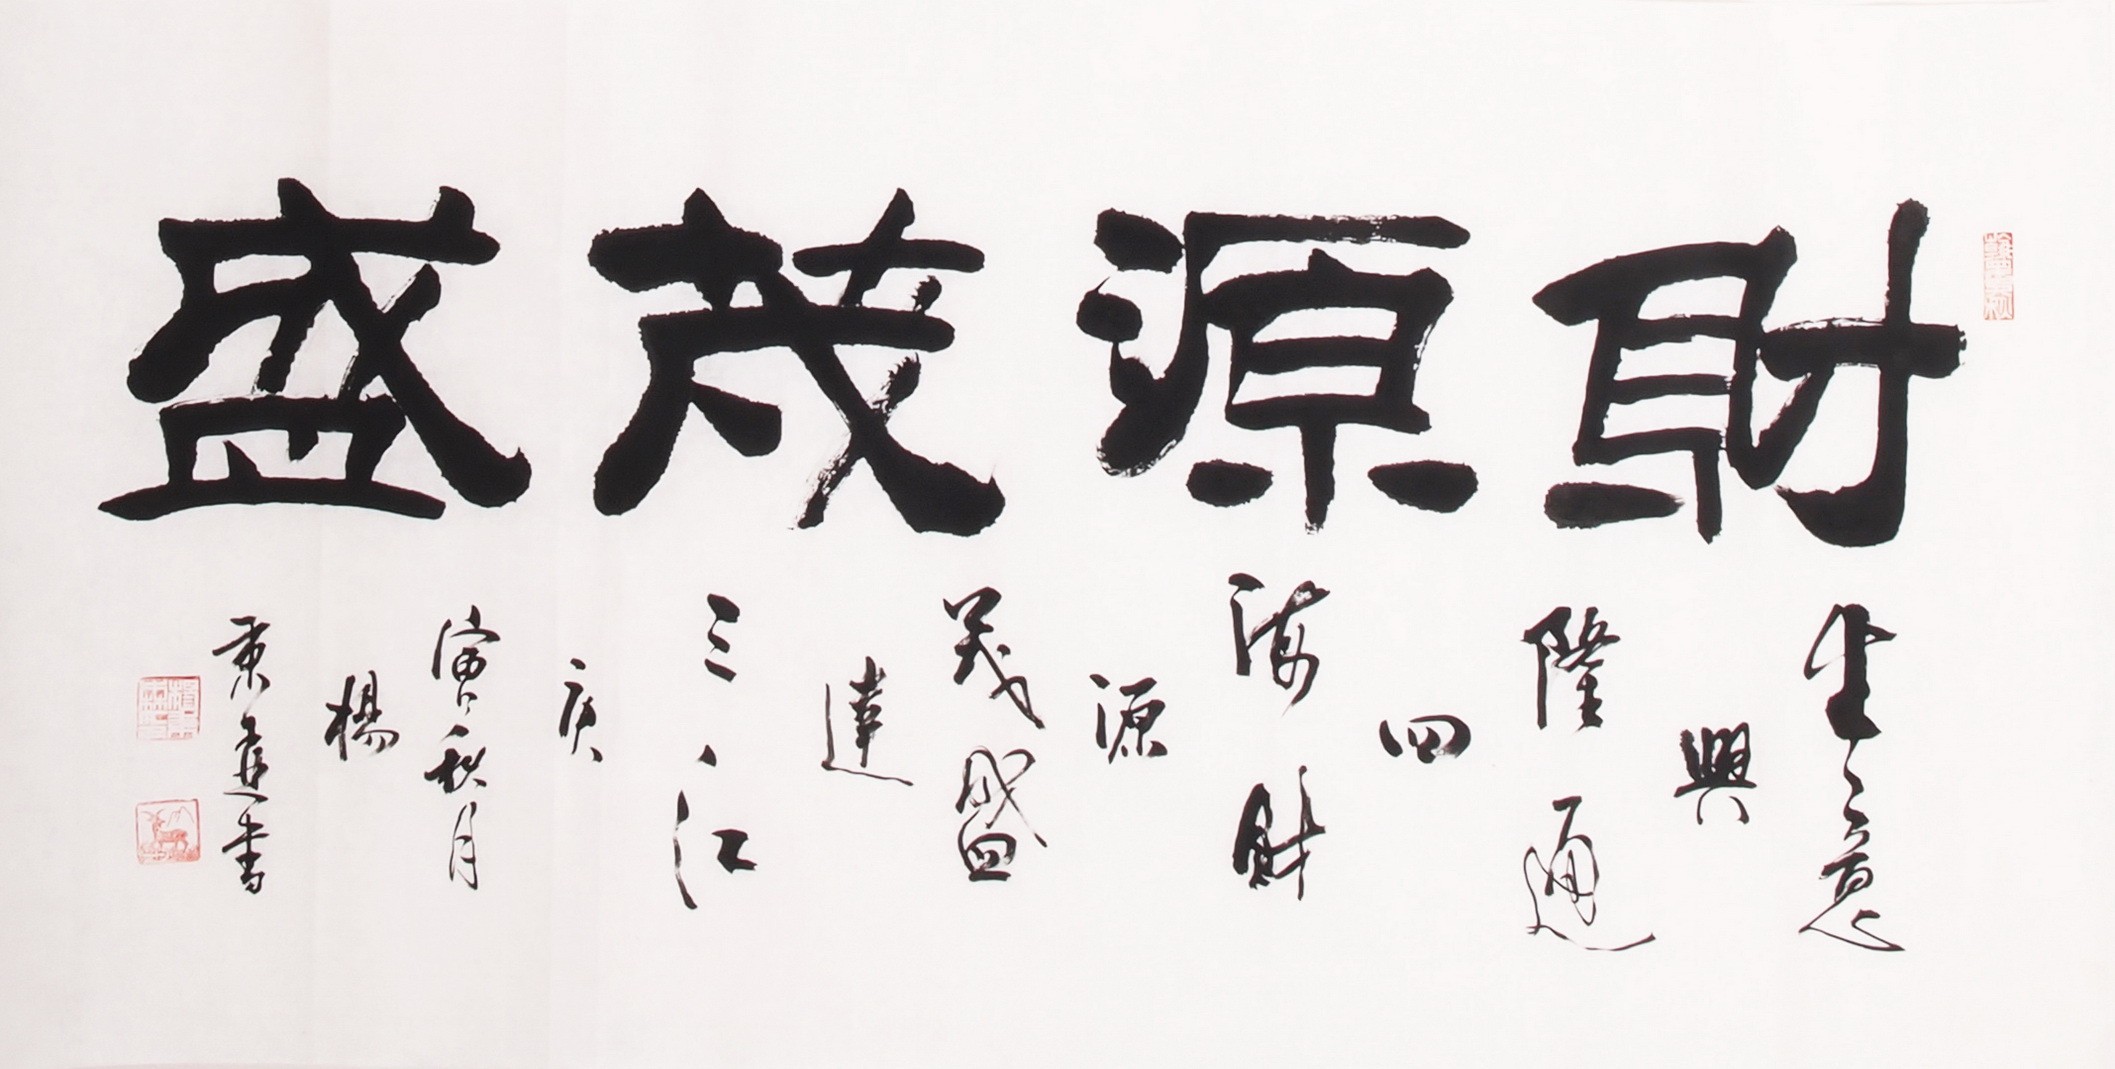 財源茂盛
生意
興
隆通
四
海財
源
茂盛
達
三江
庚
寅秋月
楊
書